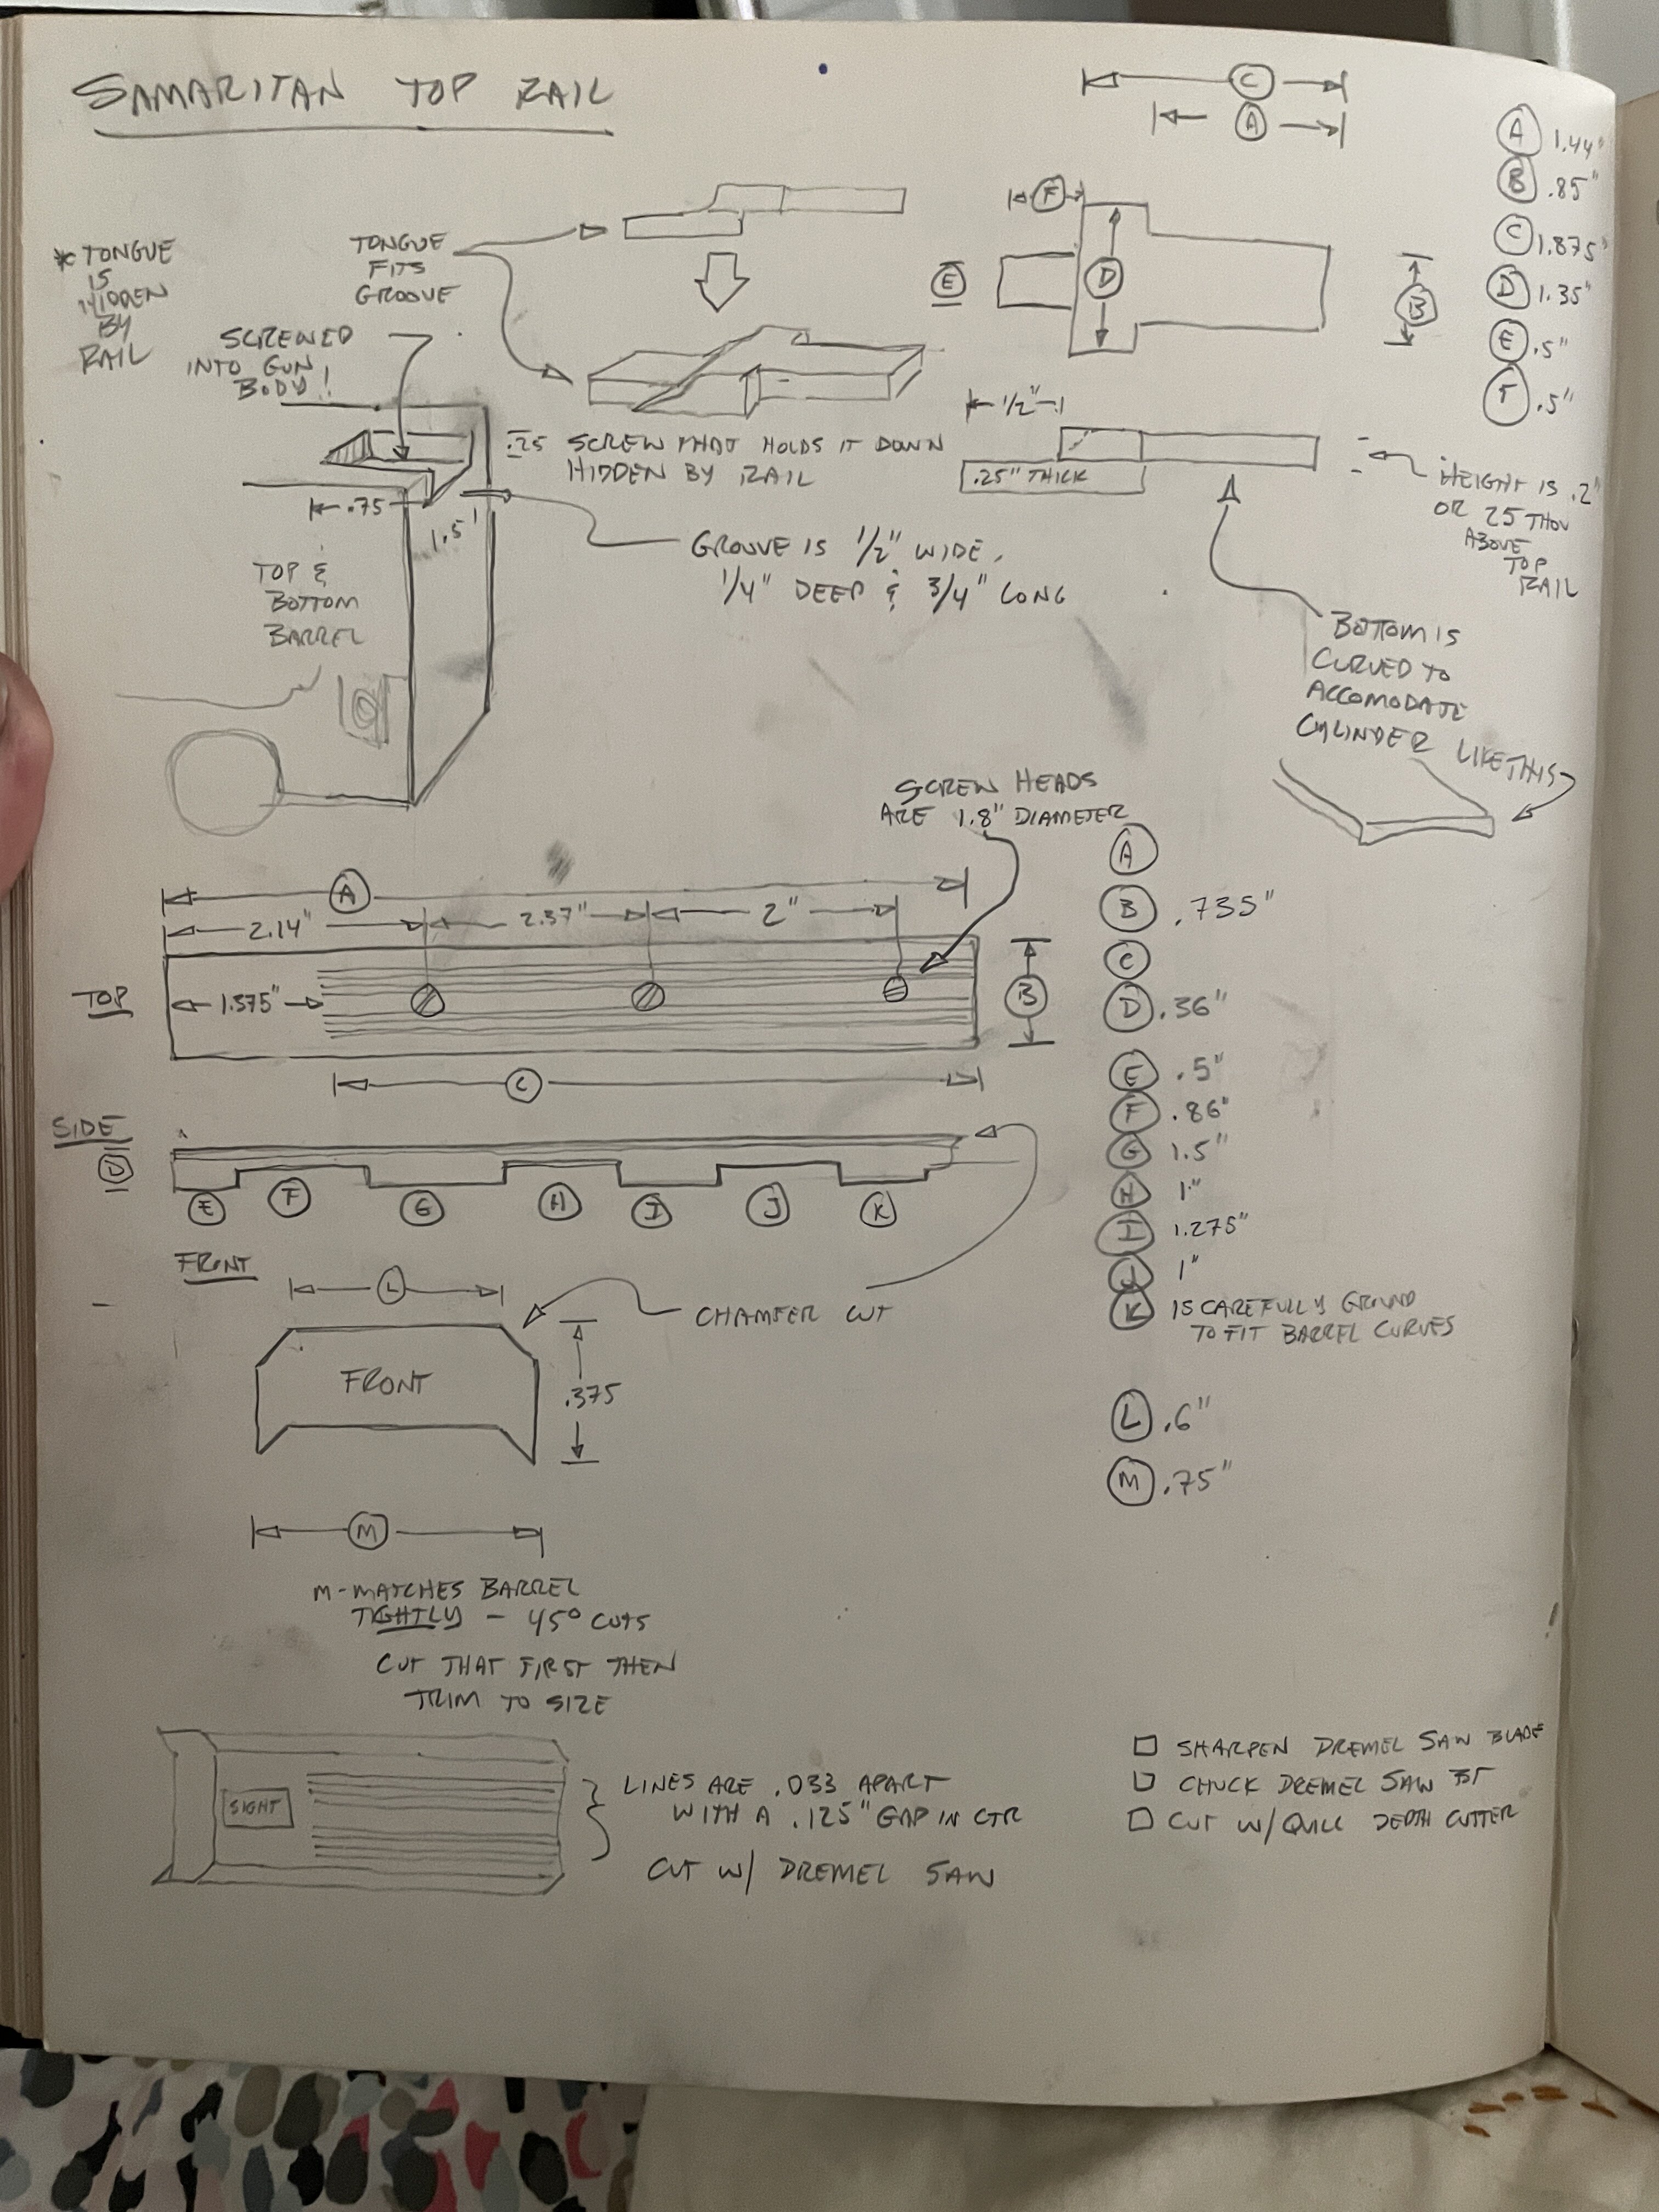 SAMARITAN TOP RAIL
C
A
A 1.44"
B .85"
C 1.875"
D 1.35"
E .5"
F .5"
* TONGUE
IS
HIDDEN
BY
RAIL
TONGUE
FITS
GROOVE
SCREWED
INTO GUN
BODY!
F
E
D
B
.25 SCREW THAT HOLDS IT DOWN
HIDDEN BY RAIL
1/2"
.25" THICK
HEIGHT IS .2"
OR 25 THOU
ABOVE
TOP
RAIL
.75
1.5
GROOVE IS 1/2" WIDE,
1/4" DEEP & 3/4" LONG
TOP &
BOTTOM
BARREL
BOTTOM IS
CURVED TO
ACCOMODATE
CYLINDER LIKE THIS
SCREW HEADS
ARE 1.8" DIAMETER
A
2.14" 2.37" 2"
TOP
1.375"
B
C
A
B .735"
C
D .36"
E .5"
F .86"
G 1.5"
H 1"
I 1.275"
J 1"
K IS CAREFULLY GROUND
TO FIT BARREL CURVES
L .6"
M .75"
SIDE
D
E F G H I J K
FRONT
L
CHAMFER CUT
FRONT
.375
M
M-MATCHES BARREL
TIGHTLY - 45° CUTS
CUT THAT FIRST THEN
TRIM TO SIZE
SIGHT
LINES ARE .033 APART
WITH A .125" GAP IN CTR
CUT W/ DREMEL SAW
SHARPEN DREMEL SAW BLADE
CHUCK DREMEL SAW
CUT W/ QUILL DEPTH CUTTER